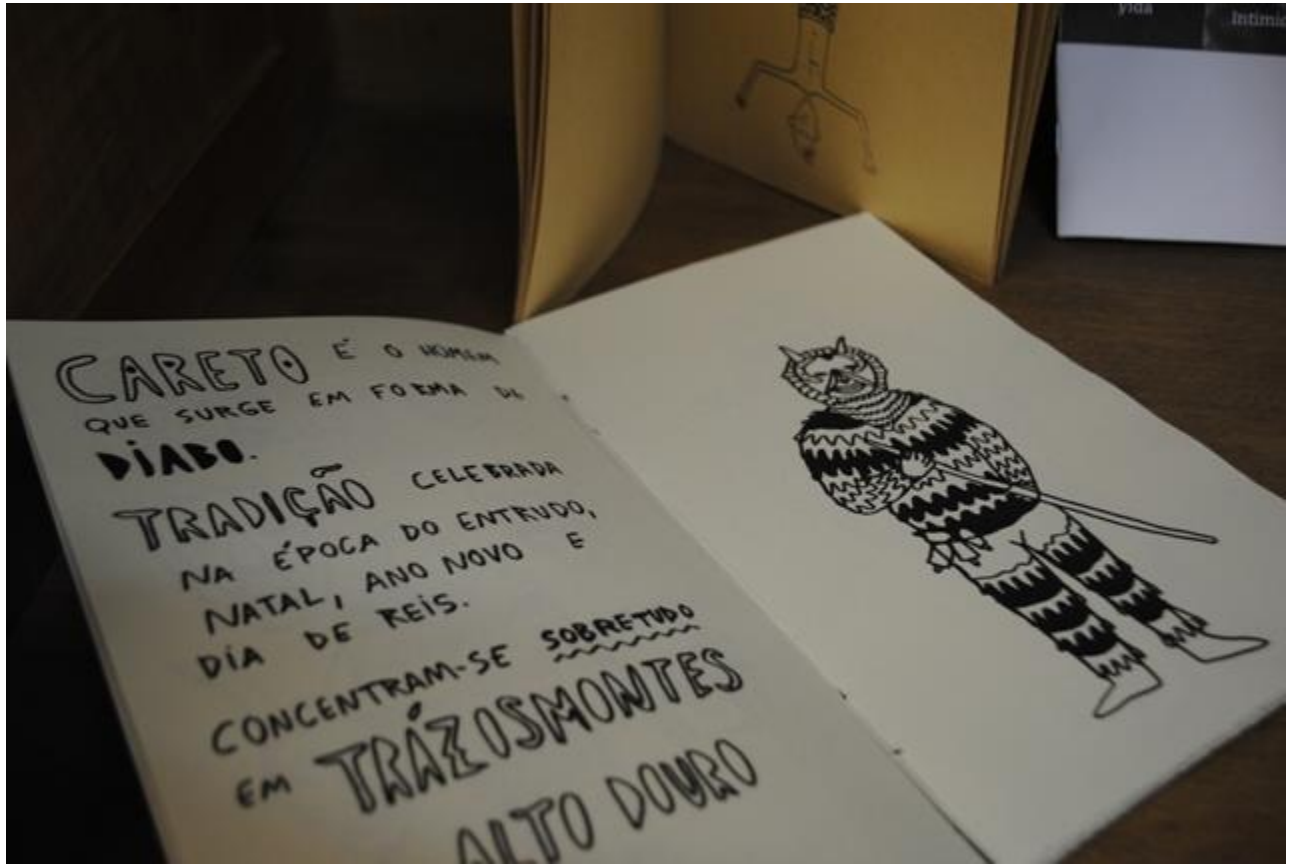 vida
Intimid
CARETO É O HOMEM
QUE SURGE EM FORMA DE
DIABO.
TRADIÇÃO CELEBRADA
NA ÉPOCA DO ENTRUDO,
NATAL, ANO NOVO E
DIA DE REIS.
CONCENTRAM-SE SOBRETUDO
EM TRÁZOSMONTES
ALTO DOURO